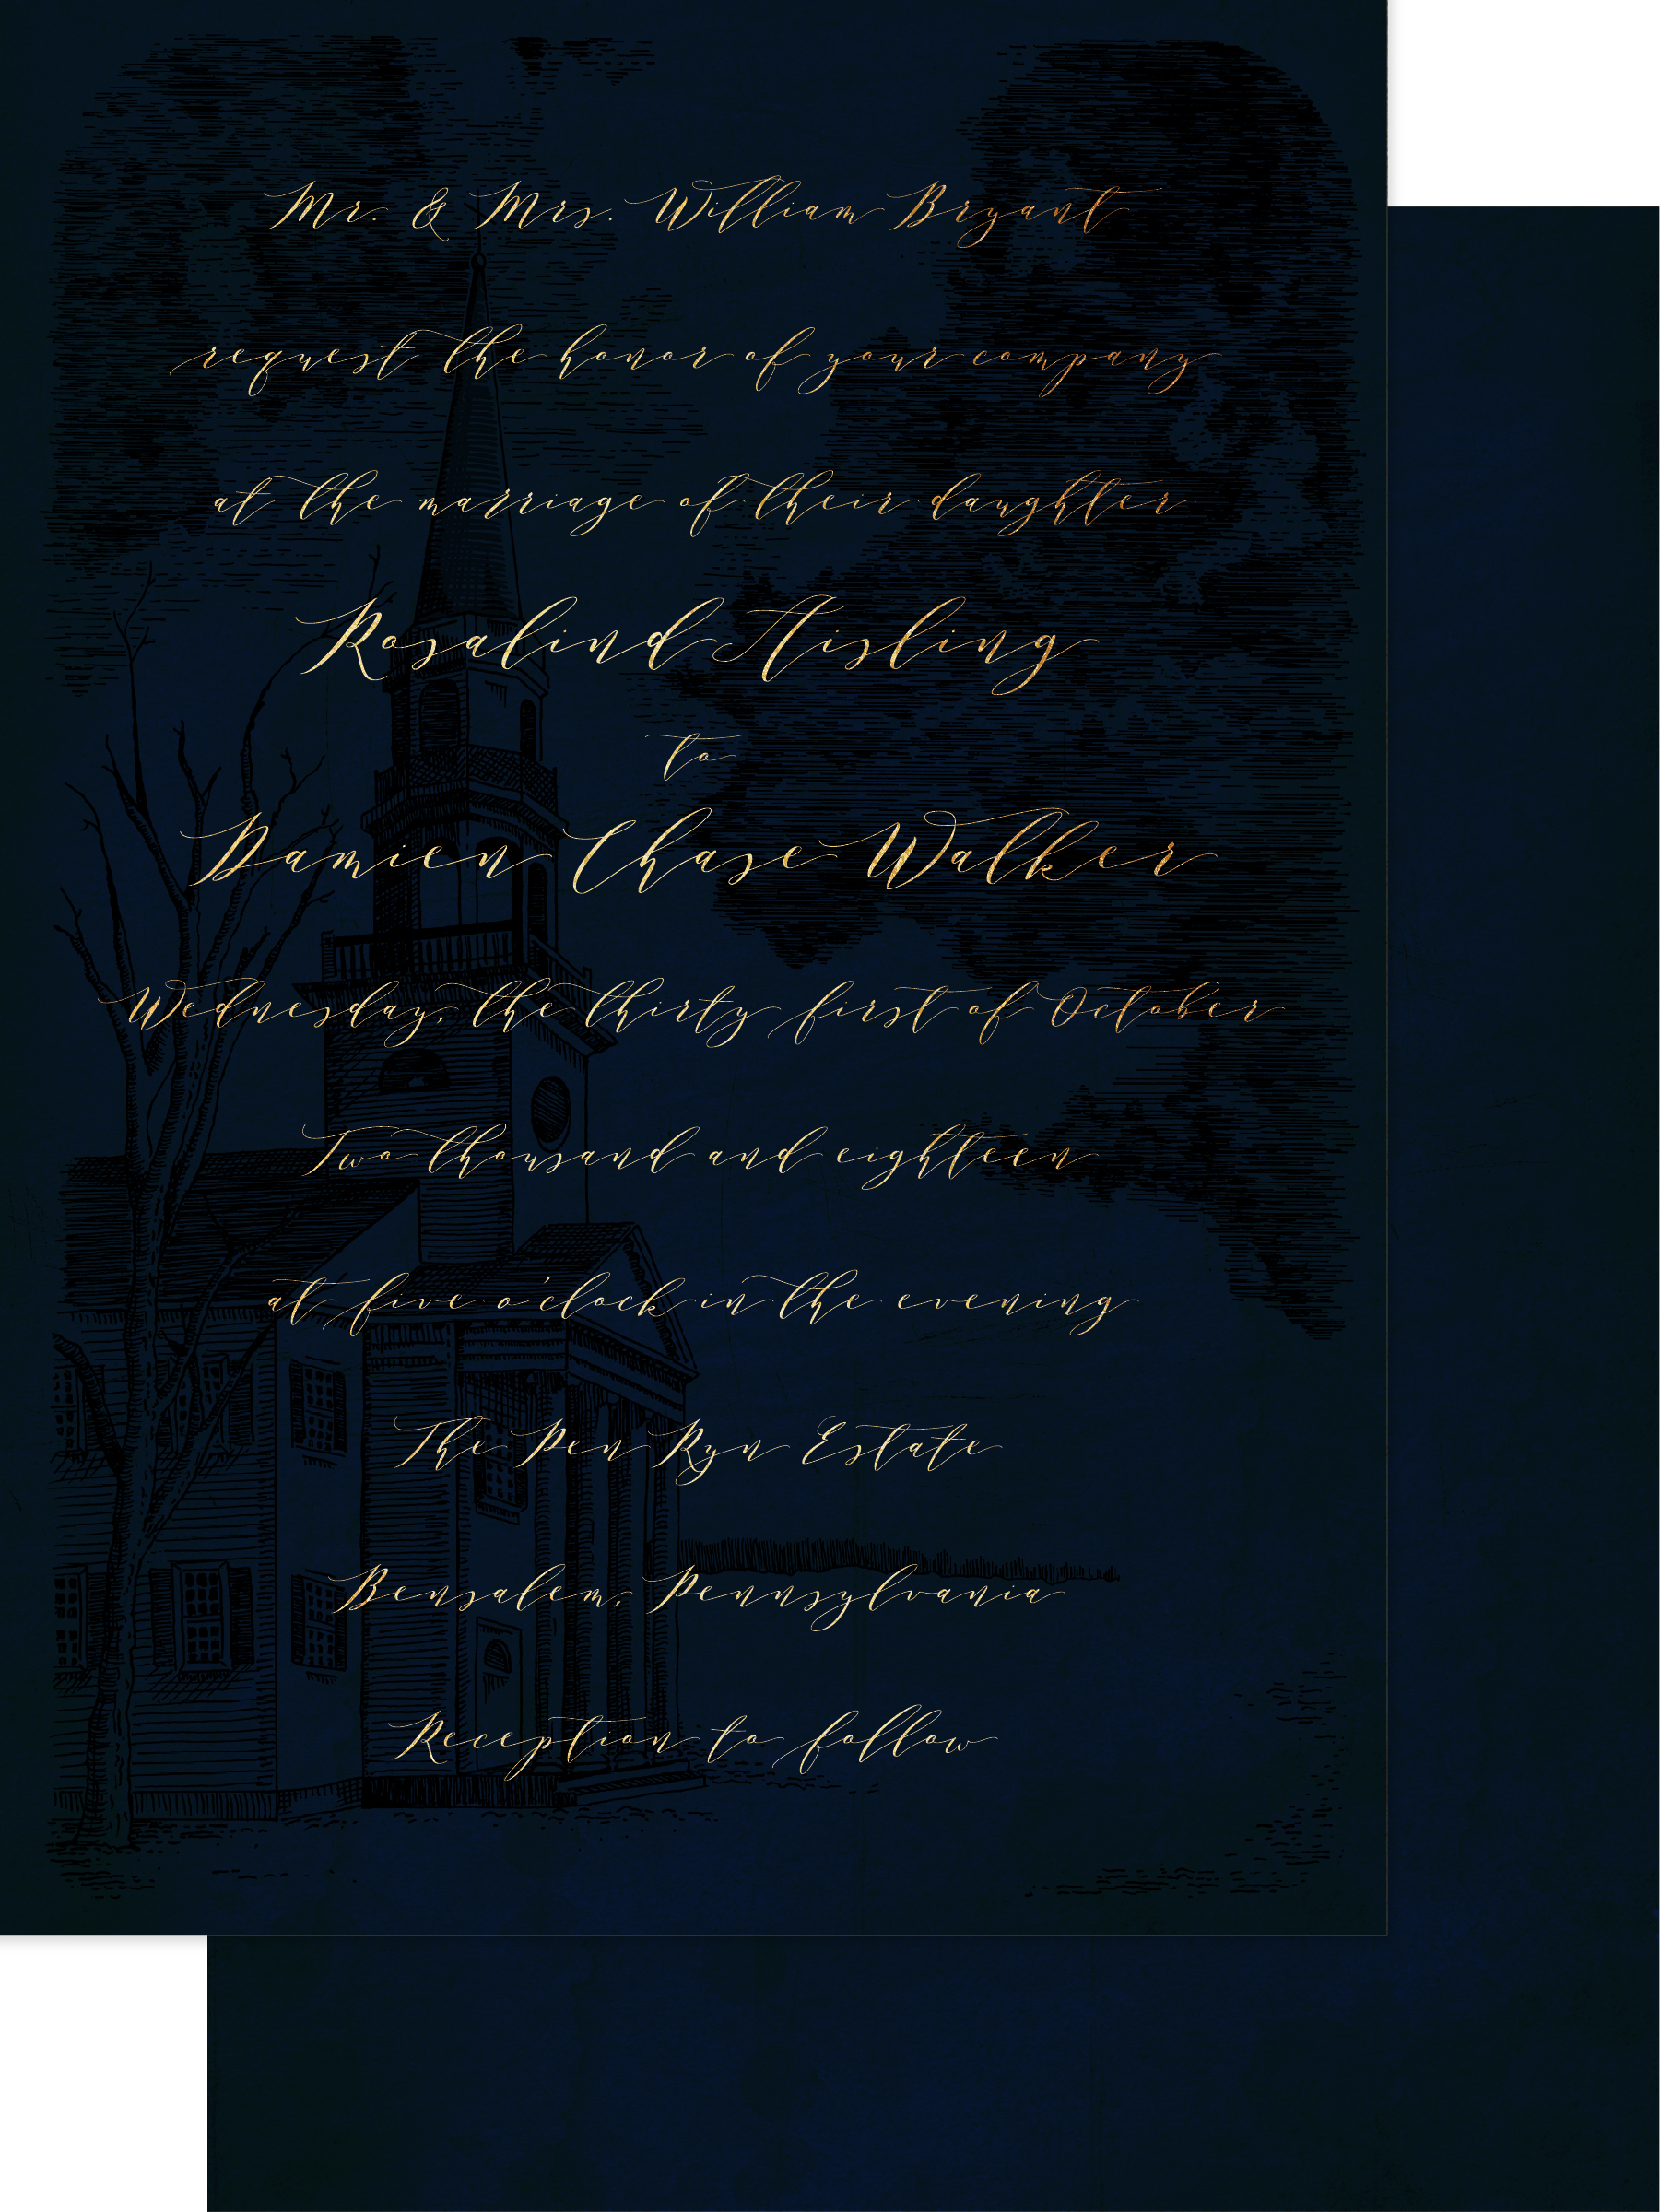 Mr. & Mrs. William Bryant
request the honor of your company
at the marriage of their daughter
Rosalind Aisling
to
Damien Chase Walker
Wednesday, the thirty first of October
Two thousand and eighteen
at five o'clock in the evening
The Pen Ryn Estate
Bensalem, Pennsylvania
Reception to follow